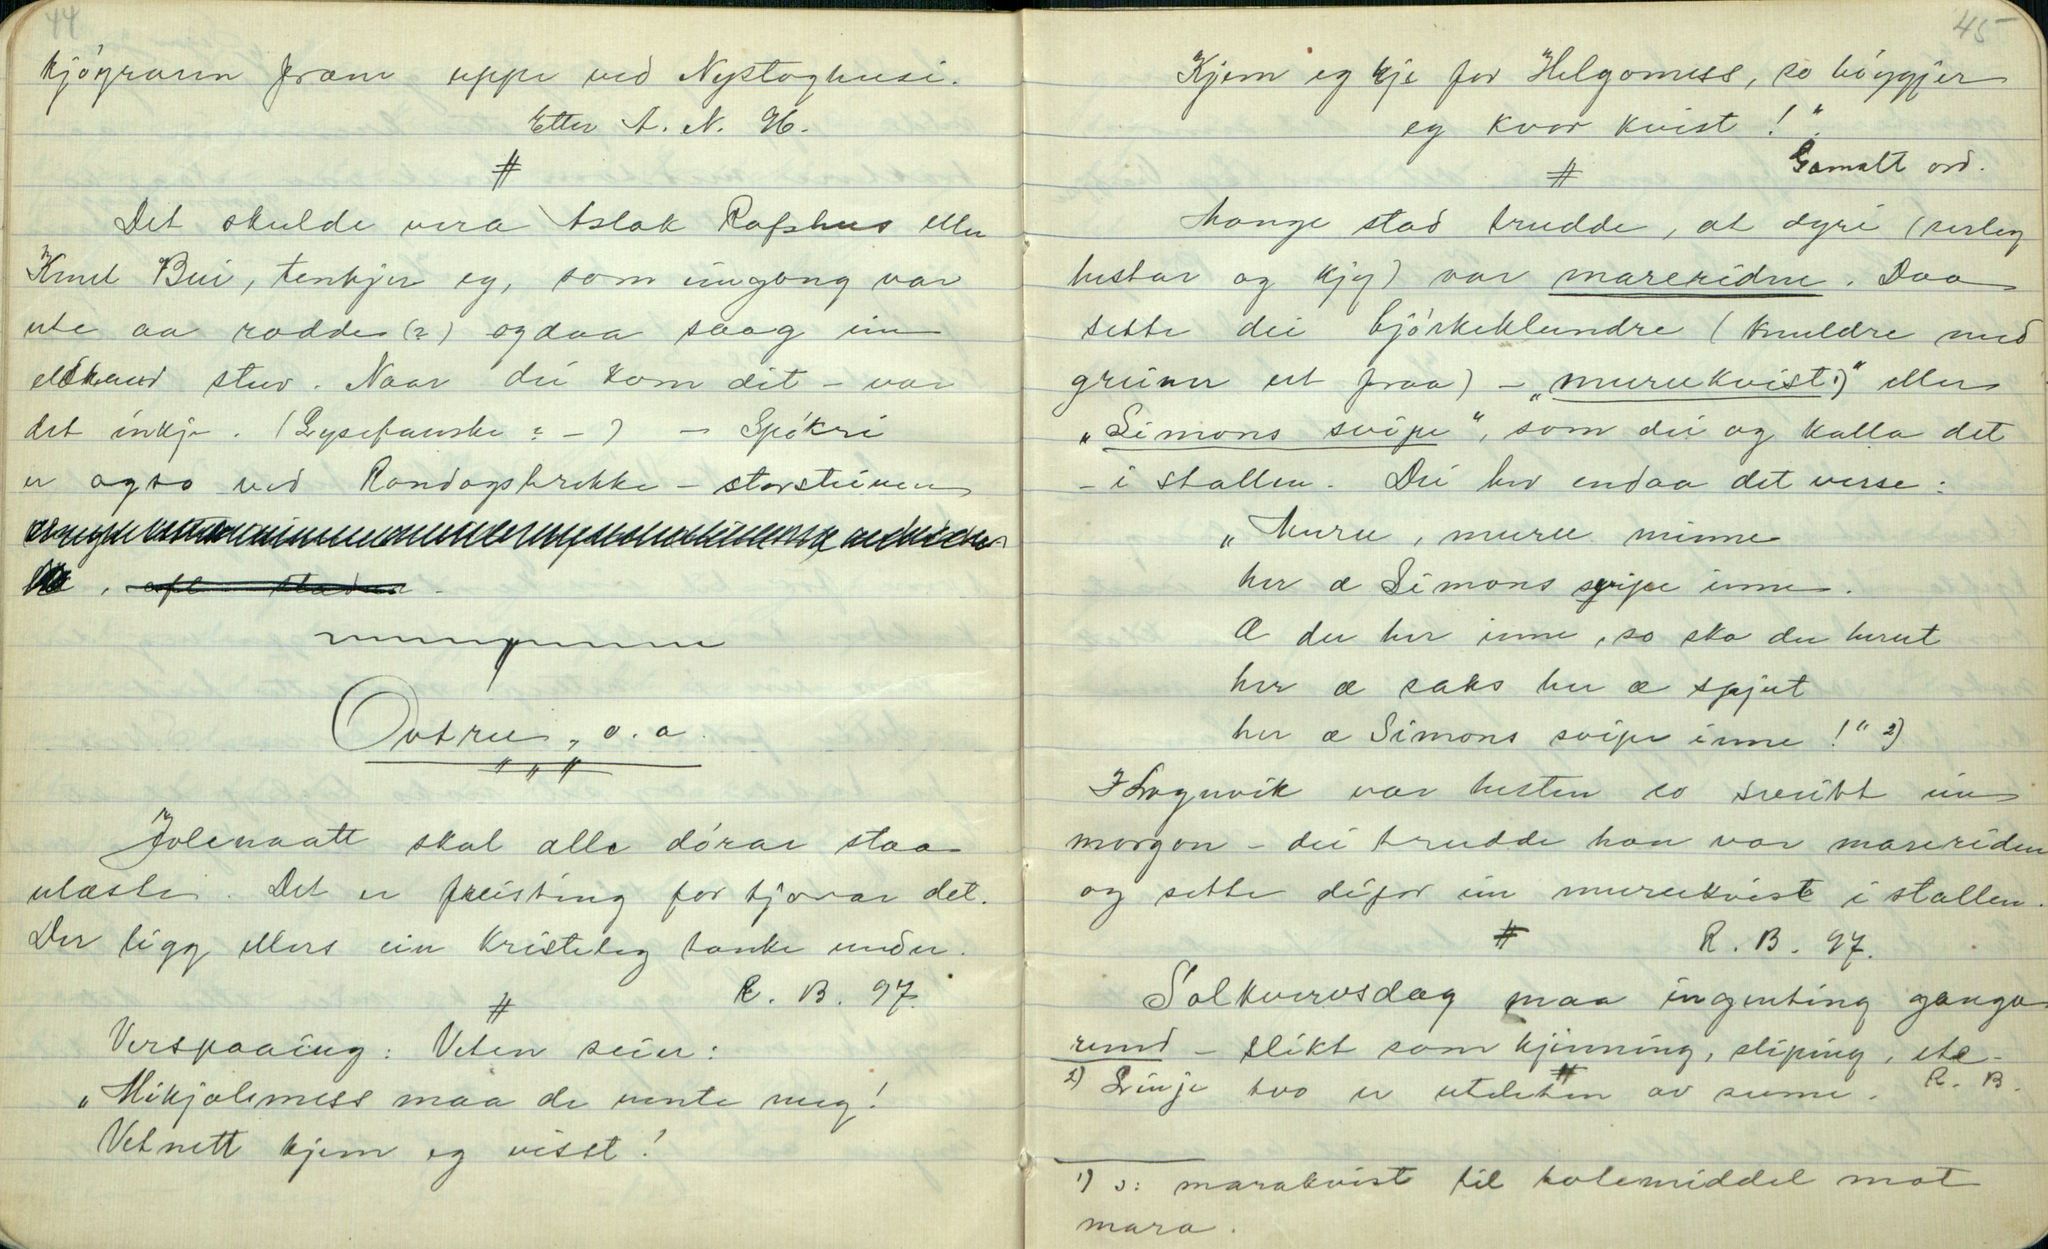 44
kjøgraven fram uppe ved Nystoghusi.
Etter A. N. 96.
#
Det skulde vera Aslak Rafshus eller
Knut Bui, tenkjer eg, som eingong var
ute aa rodde (?) og daa saag ein
stuv. Naar dei kom dit – var
det inkje. (Lysefanske ? –) – Spøkri
er ogso ved Rondagsbrekke – storsteinen

Ovtru, o. a.
Jolenaatt skal alle dórar staa
ulæste. Det er freisting for tjovar det.
Der ligg ellers ein kristeleg tanke under.
R. B. 97.
#
Verspaaing: Veten seier:
„Mikjolsmess maa de vente meg!
Vetnett kjem eg visst!
45
Kjem eg kje for Helgomess, so høggjer
eg kvar kvist!".
Gamalt ord.
#
Mange stad trudde, at dyri (serleg
hestar og kjy) var mareridne. Daa
sette dei bjórkeklundre (knuldre med
greiner ut fraa) – „muruukvist¹)" eller
„Simons svipe", som dei og kalla det
– i stallen. Dei har endaa det verse:
„Muru, muru minne
her æ Simons svipe inne.
Æ du her inne, so ska du herut
her æ saks her æ spjut
her æ Simons svipe inne!" 2)
I Lognvik var hesten so sveitt ein
morgon – dei trudde han var mareriden
og sette difor ein muruukvist i stallen.
# R. B. 97.
Solkvervsdag maa ingenting ganga
rund – slikt som kjinning, sliping, etc.
R. B.
#
2) Linje tvo er uteleten av sume.
1) ɔ: marakvist til botemiddel mot
mara.